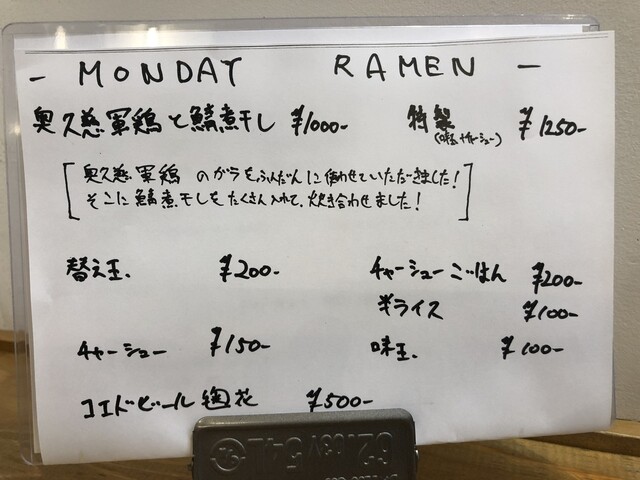 - MONDAY RAMEN -
奥久慈軍鶏と鯖煮干し ¥1000- 特製 ¥1250-
(味玉+チャーシュー)
奥久慈軍鶏のガラをふんだんに使わせていただきました!
そこに鯖煮干しをたくさん入れて、炊き合わせました!
替え玉、 ¥200- チャーシューごはん ¥200-
半ライス ¥100-
チャーシュー ¥150- 味玉、 ¥100-
コエドビール 毬花 ¥500-